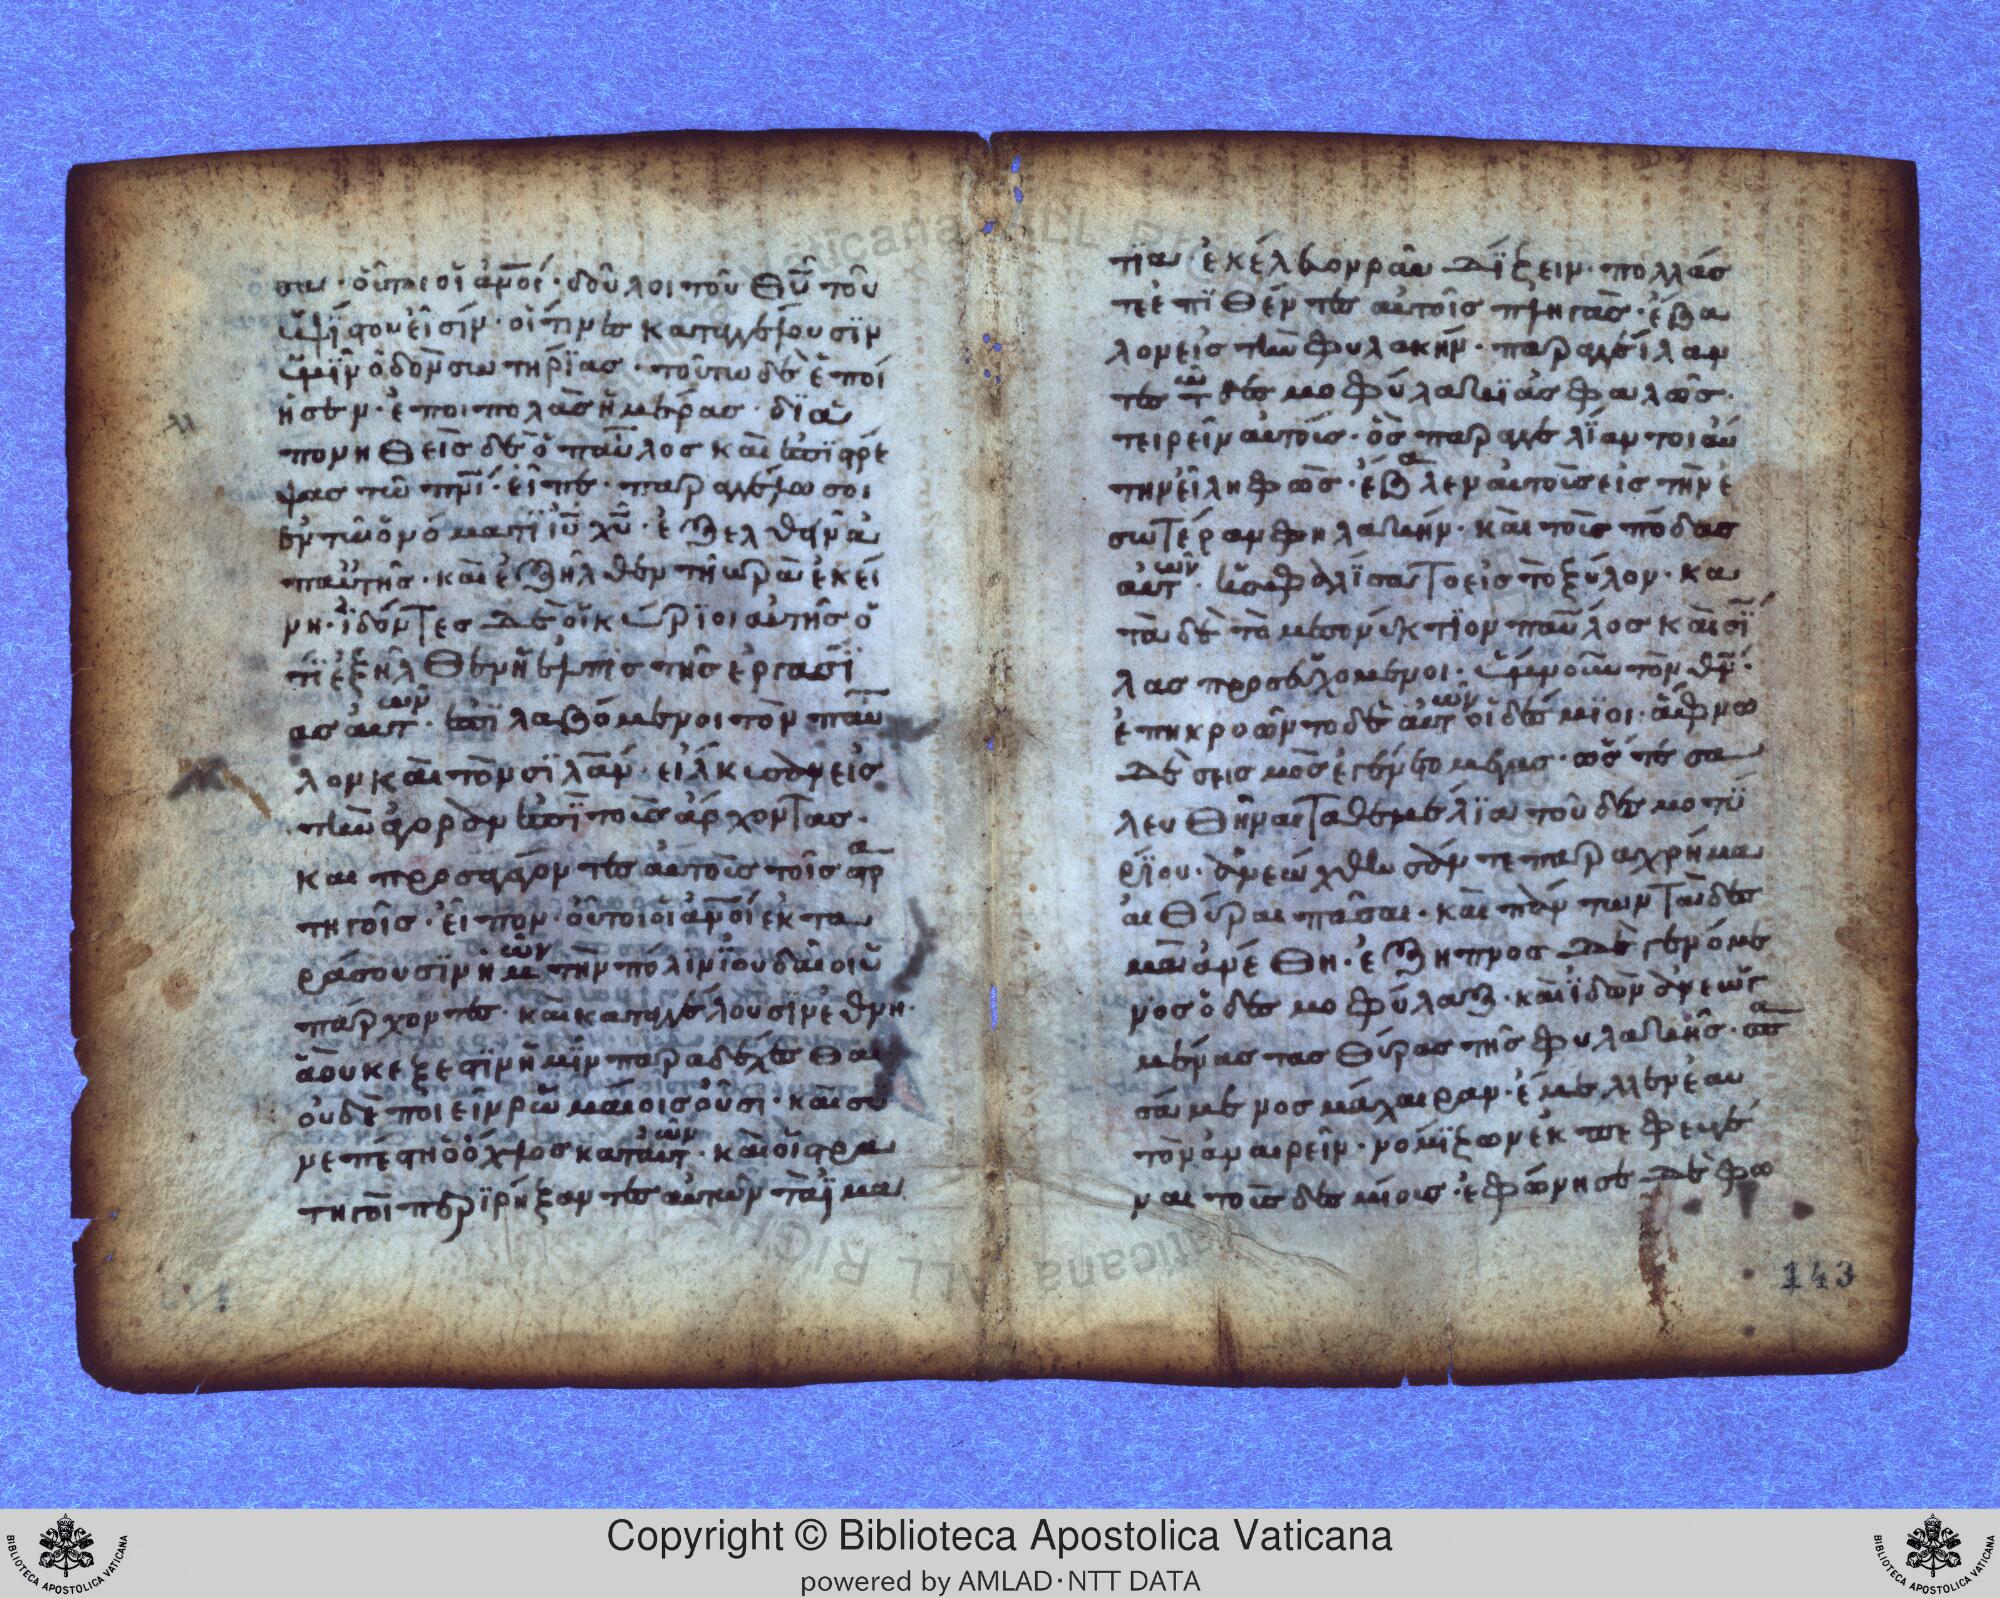 σα · οὕτεοι οἱ ἀν̅οί · δοῦλοι τοῦ Θυ̅ τοῦ
ὑψίστου εἰσίν · οἵτινες καταγγέλλουσϊν
ὑμῖν ὁδὸν σωτηρίας · τοῦτω δὲ ἐποί
ησεν · ἐποι πολὰς ἡμέρας · δϊα
πονηθεὶς δὲ ὁ παῦλος καὶ ἐπϊστρέ
ψας τῶ πνι̅ · εἶπε · παραγγέλλω σοι
ἐν τῶ ὀνόματϊ ιυ̅ χυ̅ · ἐξελθεῖν ἀ
παὐτῆς · καὶ ἐξῆλθεν τῆ ωρα ἐκεί
νη · ἰδόντες δὲ οἱ κύρϊοι αὐτῆς ὅ
τϊ ἐξῆλθεν ἡ ἐλπὶς τῆς ἐργασΐ
ας αὐτῶν · ἐπϊλαβόμενοι τὸν παῦ
λον καὶ τὸν σϊλᾶν · εἵλκυσαν εἰς
τὴν ἀγορὰν ἐπῒ τοὺς ἄρχοντας ·
και προσαγαγόντες αὐτοὺς τοῖς στρα
τηγοῖς · εἶπον · οὗτοι οἱ ἀν̅οί ἐκτα
ράσουσϊν ἡμῶν τὴν πόλϊν ϊουδαῖοι ὑ
πάρχοντες · καὶ καταγγέλουσϊν ἔθνη ·
ἃ οὐκ εξεστϊν ἡμῖν παραδέχεσθαι
οὐδὲ ποιεῖν ρωμαίοις οὖσι · καὶ συ
νεπέστη ὁ ὄχλος κατ αὐτῶν · καὶ οἱ στρα
τηγοῒ περϊρήξαντες αὐτῶν τὰ ϊμα
τϊα ἐκέλευον ραβδΐζειν · πολλάς
τε ἐπϊθέντες αὐτοῖς πληγὰς · ἔβα
λον εἰς τὴν φυλακὴν · παραγγείλαν
τες τῶ δεσμοφύλακϊ ἀσφαλῶς ·
τειρεῖν αὐτούς · ὃς παραγγελΐαν τοιαύ
την εἰληφὼς · ἔβαλεν αὐτοὺς εἰς τὴν ἐ
σωτέραν φηλακὴν · καὶ τοὺς πόδας
αὐτῶν · ἠσφαλϊσατο εἰς τὸ ξύλον · κα
τὰ δὲ τὸ μεσονύκτϊον παῦλος καὶ σΐ
λας προσευχόμενοι · ὕμνουν τὸν θν̅ ·
ἐπηκροῶντο δὲ αὐτῶν οἱ δέσμϊοι · ἄφνω
δὲ σεισμὸς ἐγένετο μέγας · ὥστε σα
λευθῆναι τὰ θεμέλϊα τοῦ δεσμοτη
ρίου · ἀνεώχθησάν τε παραχρῆμα
αι θύραι πᾶσαι · καὶ πάντων τὰ δεσ
μὰ ἀνέθη · ἔξηπνος δὲ γενόμε
νος ὁ δεσμοφύλαξ · καὶ ἰδὼν ἀνεωγ
μένας τας θύρας τῆς φυλακῆς · σπα
σάμενος μάχαιραν · ἔμελλεν ἑαυ
τὸν ἀναιρεῖν · νομΐζων ἐκπεφευγέ
ναι τοὺς δεσμίοις · ἐφώνησε δὲ φω
143
Copyright © Biblioteca Apostolica Vaticana
powered by AMLAD·NTT DATA